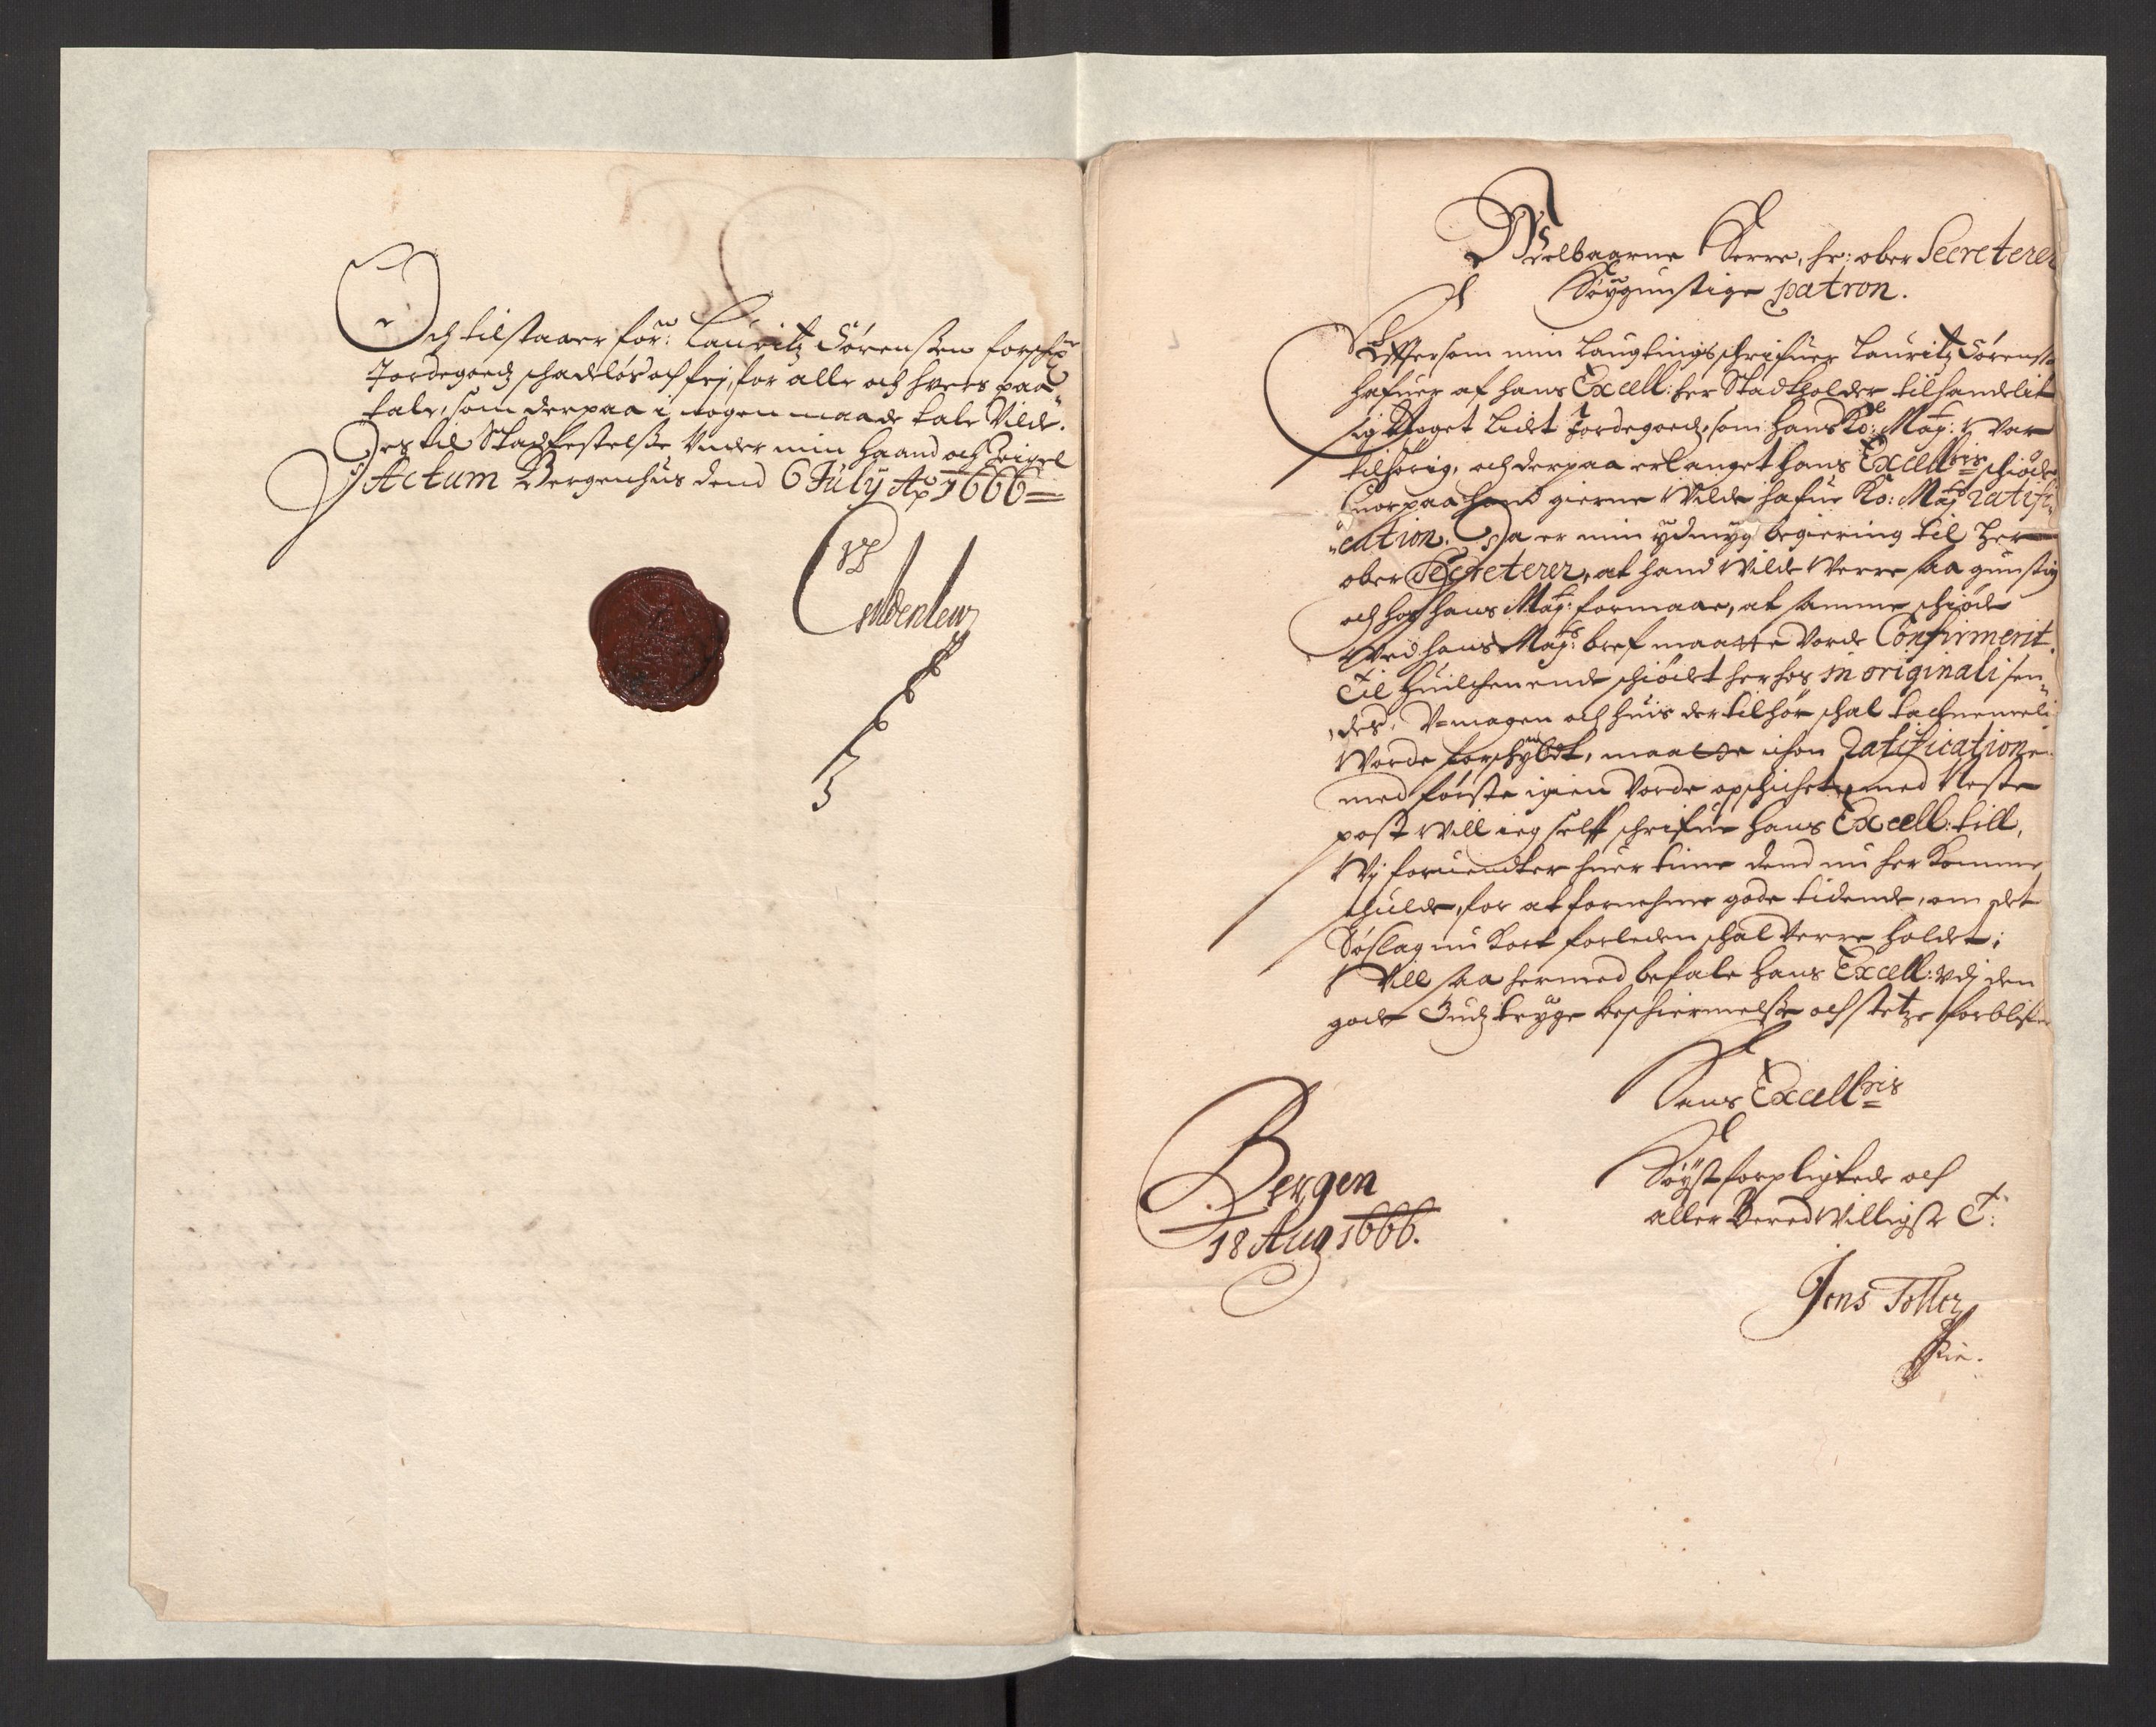 Och tilstaaer for: Lauritz Sørenßen forschr:
Jordegoedz schadeløs och frj, for alle och hvers paa
tale, som derpaa i nogen maade tale Vilde.
Des til Stadfestelße Under min Haand och Zeigel
Actum Bergenhus dend 6 July Ao 1666
Velbaarne Herre, hr: ober Secreterer
Høygunstige patron.
Eftersom min Laugtingsschrifuer Lauritz Sørensen
hafuer af hans Excell: her Stadtholder tilhandelit
sig Noget Lidet Jordegoedz, som hans Ko: May: Var
tilhørig, och derpaa erlanget hans Excellris schiøde
huorpaa hand gierne Vilde hafue Ko: Mays ratifi
cation. Da er min ydmyg begiering til Her
ober Secreterer, at hand Vilde Verre saa gunstig
och hos hans May: formaae, at samme schiøde
Ved hans Mays: bref maatte Vorde Confirmerit.
Til huilchen ende schiødet her hos in originali sen
des, V-magen och huis der tilhør schal tachnemeli
Vorde forschyldt, maatte ichon Ratificationen
med første igien Vorde opschichet, med Neste
post Vill ieg self schrifue hans Excell: till,
Vj foruendter huer time dend nu her Komme
schulde, for at fornehme gode tidende, om det
Søslag nu Kort forleden schal Verre holdet;
Vill saa hermed befale hans Excell: vdj den
gode Gudz trygge beschiermelße och stetze forblifuer
Hans Excellris
Høystforpligtede och
aller BeredVilligste T:
Bergen
18 Aug 1666.
Jens Toller